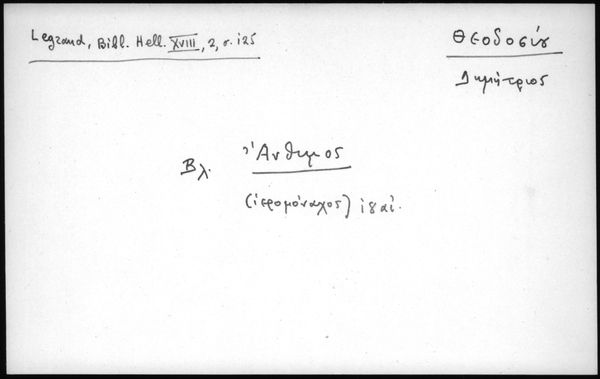 Legrand, Bibl. Hell. XVIII, 2, σ. 125
Θεοδοσίου
Δημήτριος
Βλ. Ἄνθιμος
(ἱερομόναχος)